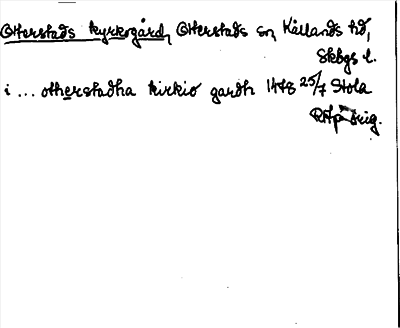 Otterstads kyrkogård, Otterstads sn, Kållands hd,
Skbgs l.
i ... otherstadha kirkio gardh 1448 25/7 Stola
RAp orig.